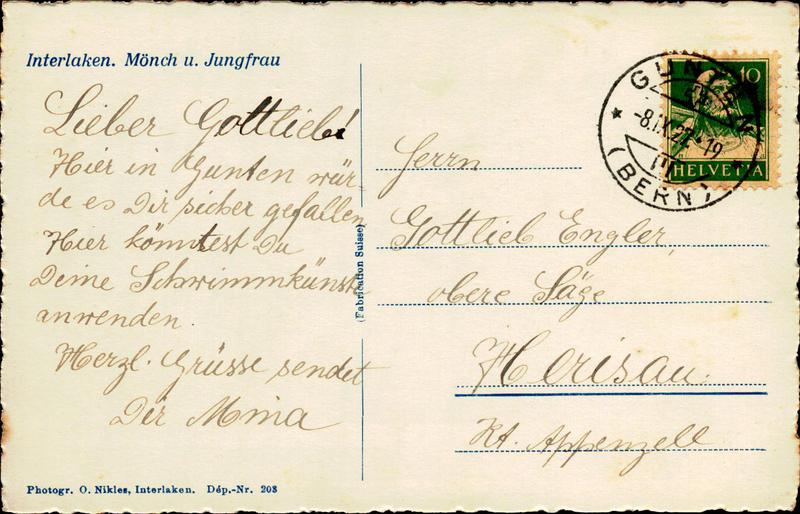 Interlaken. Mönch u. Jungfrau
Lieber Gottlieb!
Hier in Gunten wür-
de es Dir sicher gefallen
Hier könntest Du
Deine Schwimmkünste
anwenden.
Herzl. Grüsse sendet
Dir Mina
Photogr. O. Nikles, Interlaken. Dép.-Nr. 208
(Fabrication Suisse)
GUNTEN
-8.IX.27-19
(BERN)
10
HELVETIA
Herrn
Gottlieb Engler,
obere Säge
Herisau.
Kt. Appenzell